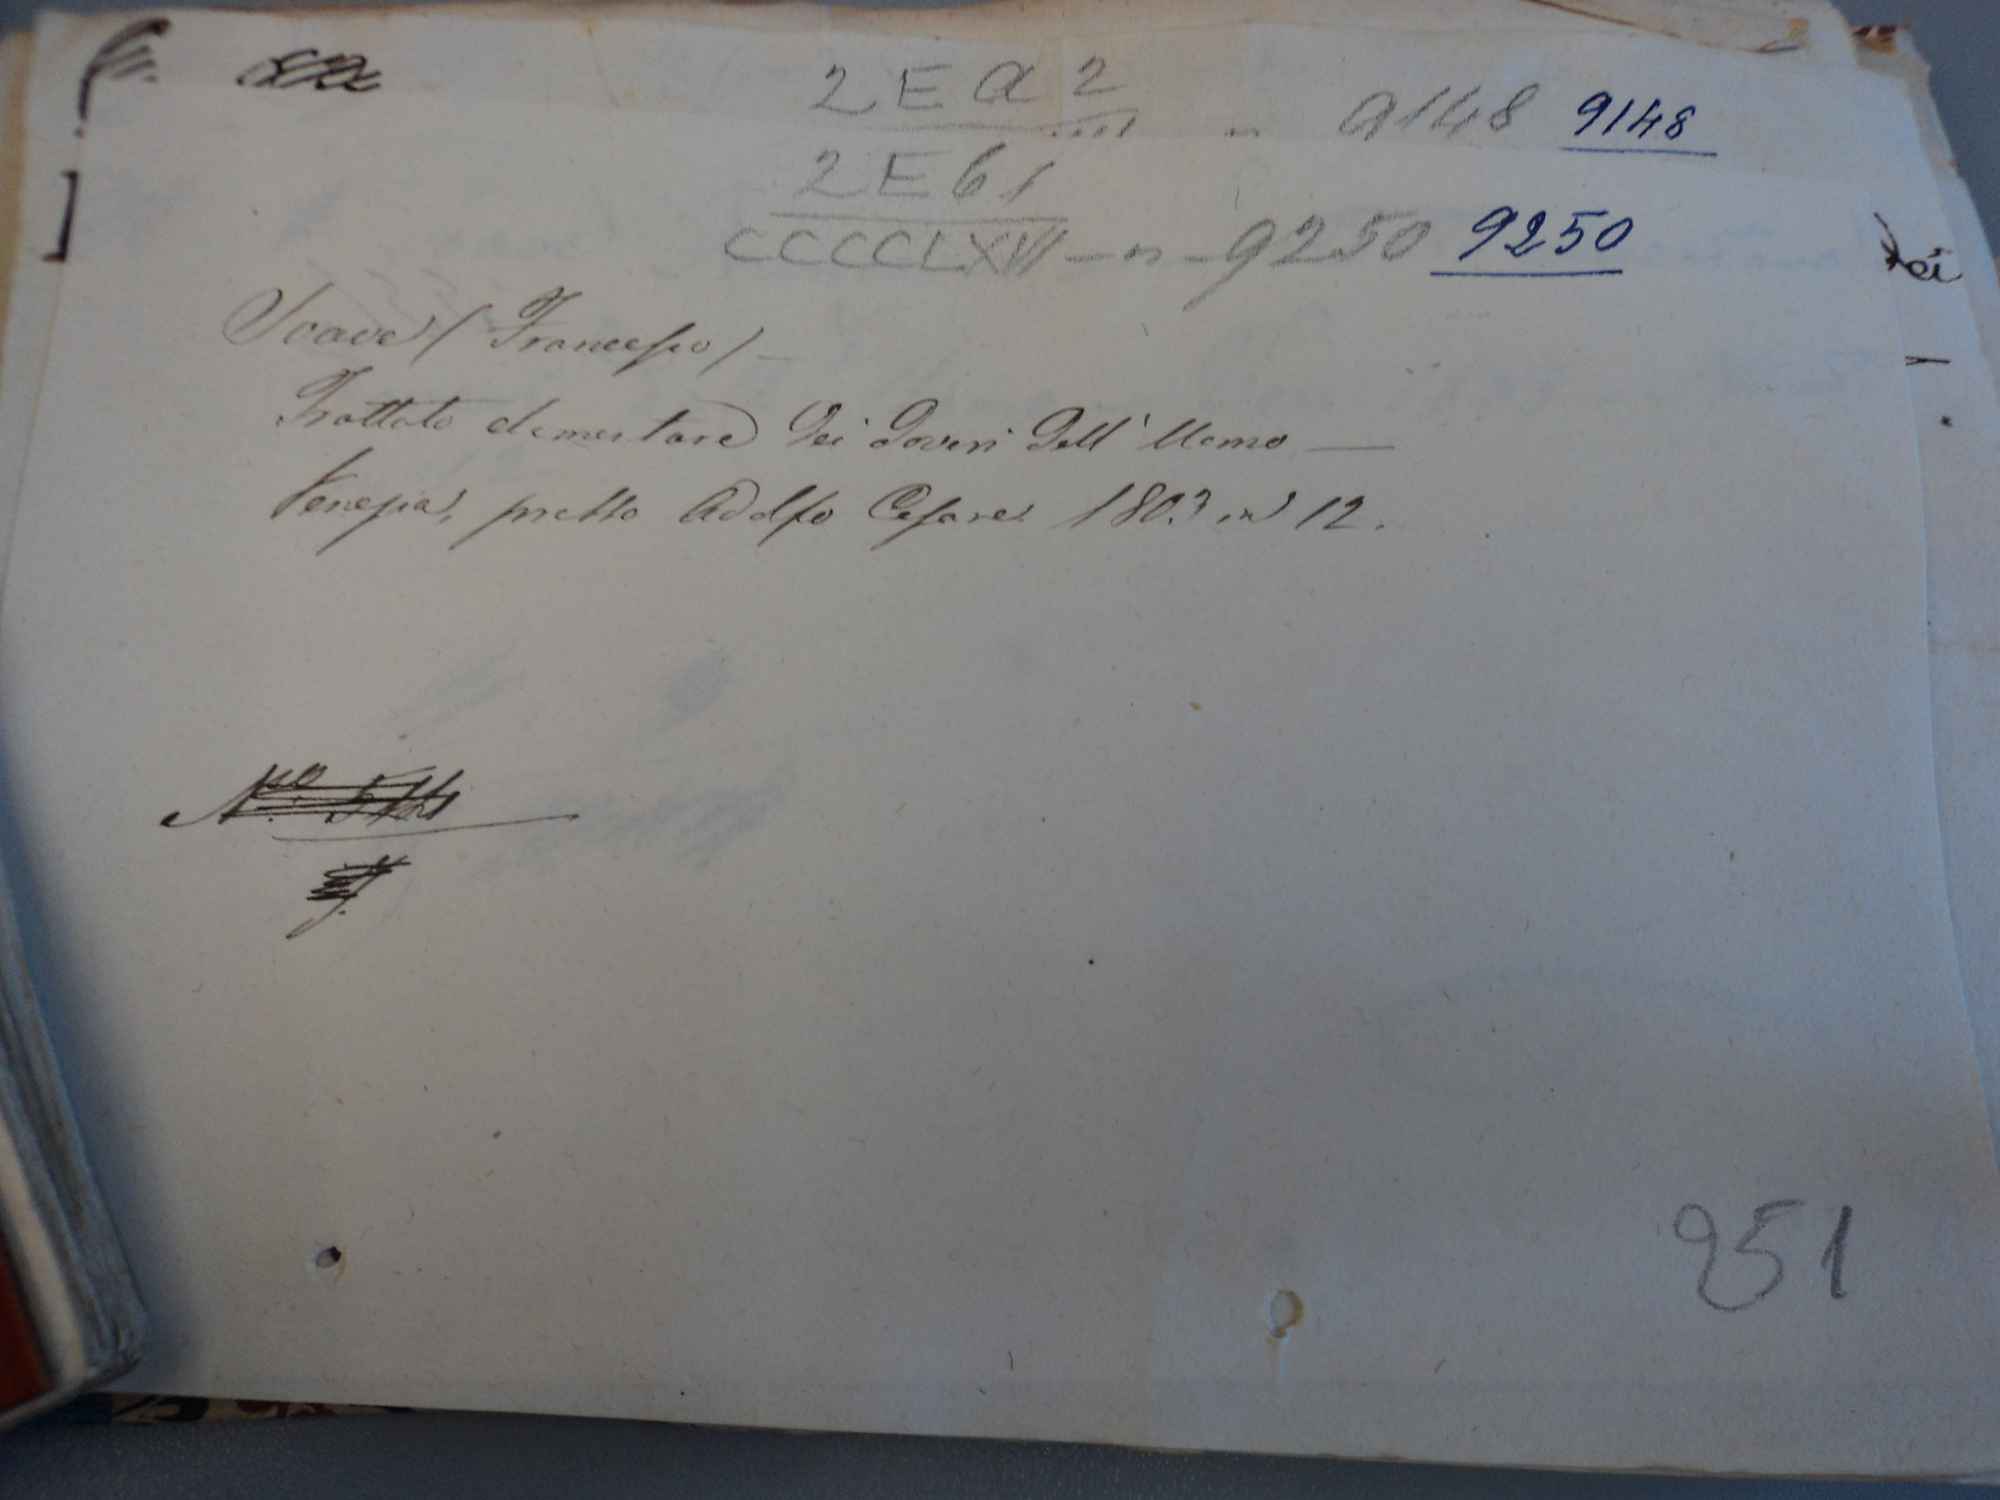 2 E a 2 - 9148 9148
2 E 6 1
CCCCCLXVI - n - 9250 9250
Soave (Francesco) -
Trattato elementare dei doveri dell'Uomo —
Venezia, presso Adolfo Cesare 1803 in 12.
N.º
251
ei